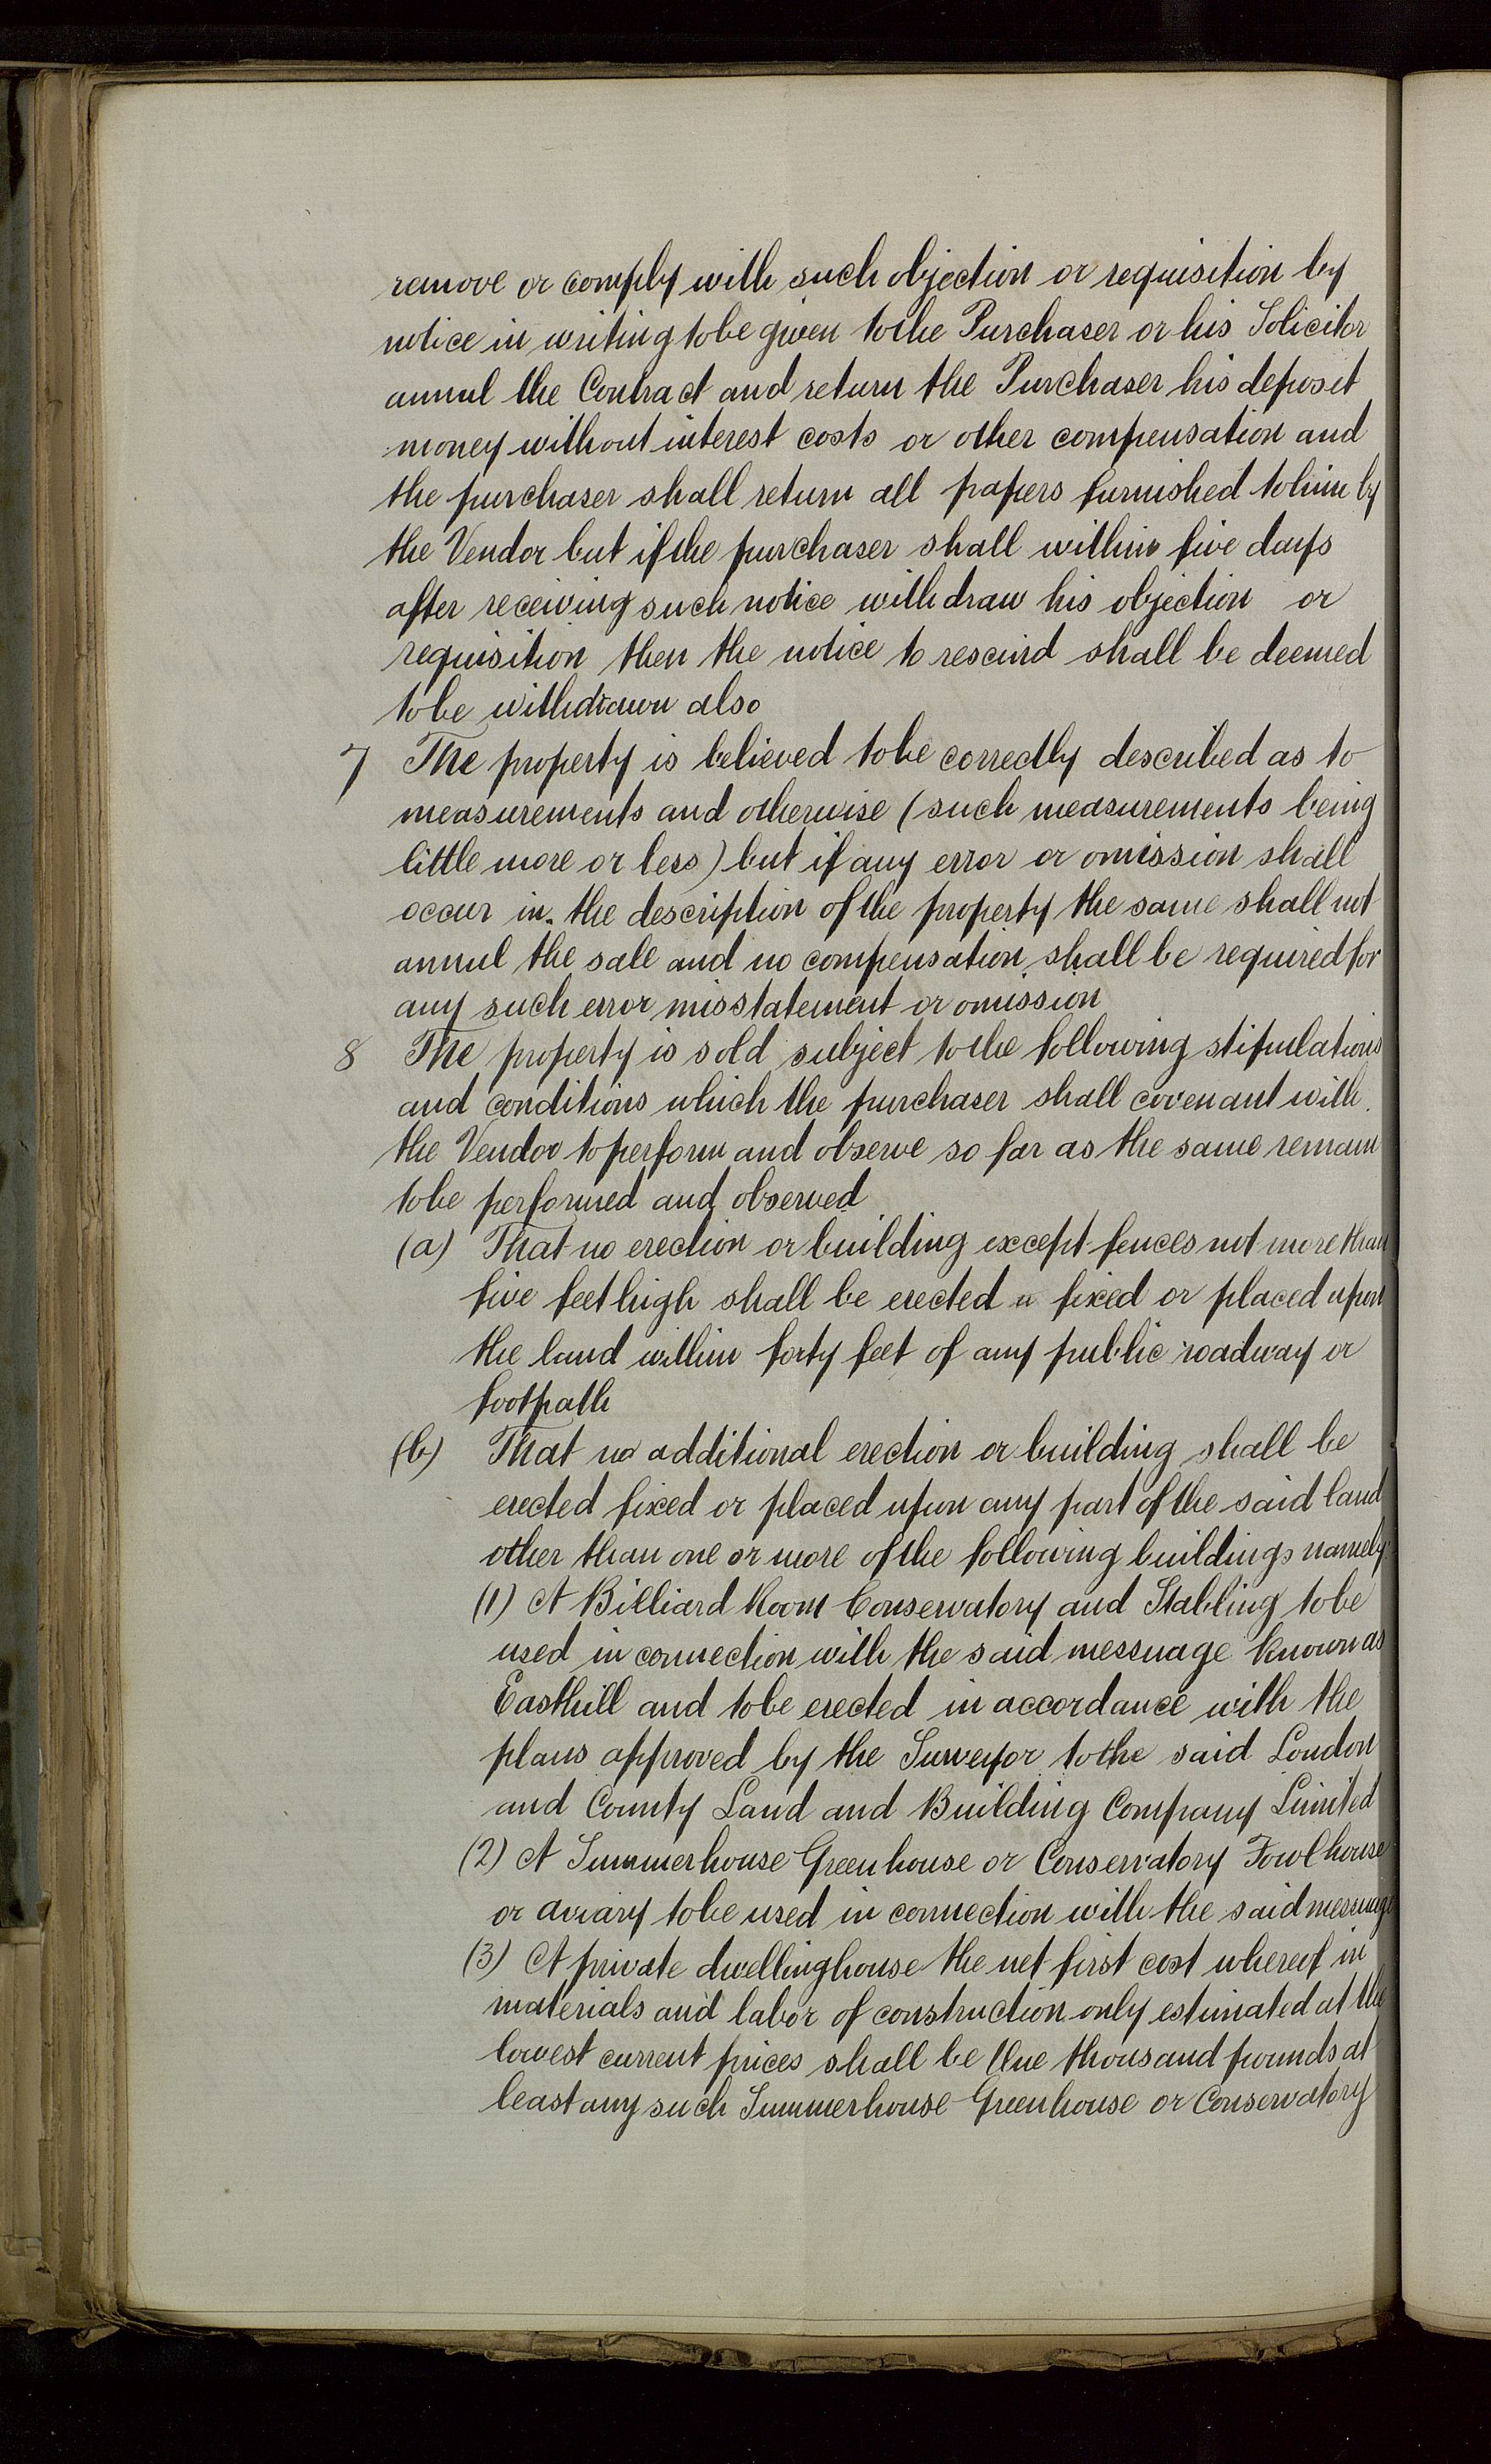 remove or comply with such objection or requisition by
notice in writing to be given to the Purchaser or his Solicitor
annul the Contract and return the Purchaser his deposit
money without interest costs or other compensation and
the purchaser shall return all papers furnished to him by
the Vendor but if the purchaser shall within five days
after receiving such notice withdraw his objection or
requisition then the notice to rescind shall be deemed
to be withdrawn also
7 The property is believed to be correctly described as to
measurements and otherwise (such measurements being
little more or less) but if any error or omission shall
occur in the description of the property the same shall not
annul the sale and no compensation shall be required for
any such error misstatement or omission
8 The property is sold subject to the following stipulations
and conditions which the purchaser shall covenant with
the Vendor to perform and observe so far as the same remain
to be performed and observed
(a) That no erection or building except fences not more than
five feet high shall be erected fixed or placed upon
the land within forty feet of any public roadway or
footpath
(b) That no additional erection or building shall be
erected fixed or placed upon any part of the said land
other than one or more of the following buildings namely
(1) A Billiard Room Conservatory and Stabling to be
used in connection with the said messuage known as
Easthill and to be erected in accordance with the
plans approved by the Surveyor to the said London
and County Land and Building Company Limited
(2) A Summerhouse Greenhouse or Conservatory Fowlhouse
or aviary to be used in connection with the said messuage
(3) A private dwellinghouse the net first cost whereof in
materials and labor of construction only estimated at the
lowest current prices shall be One thousand pounds at
least any such Summerhouse Greenhouse or Conservatory